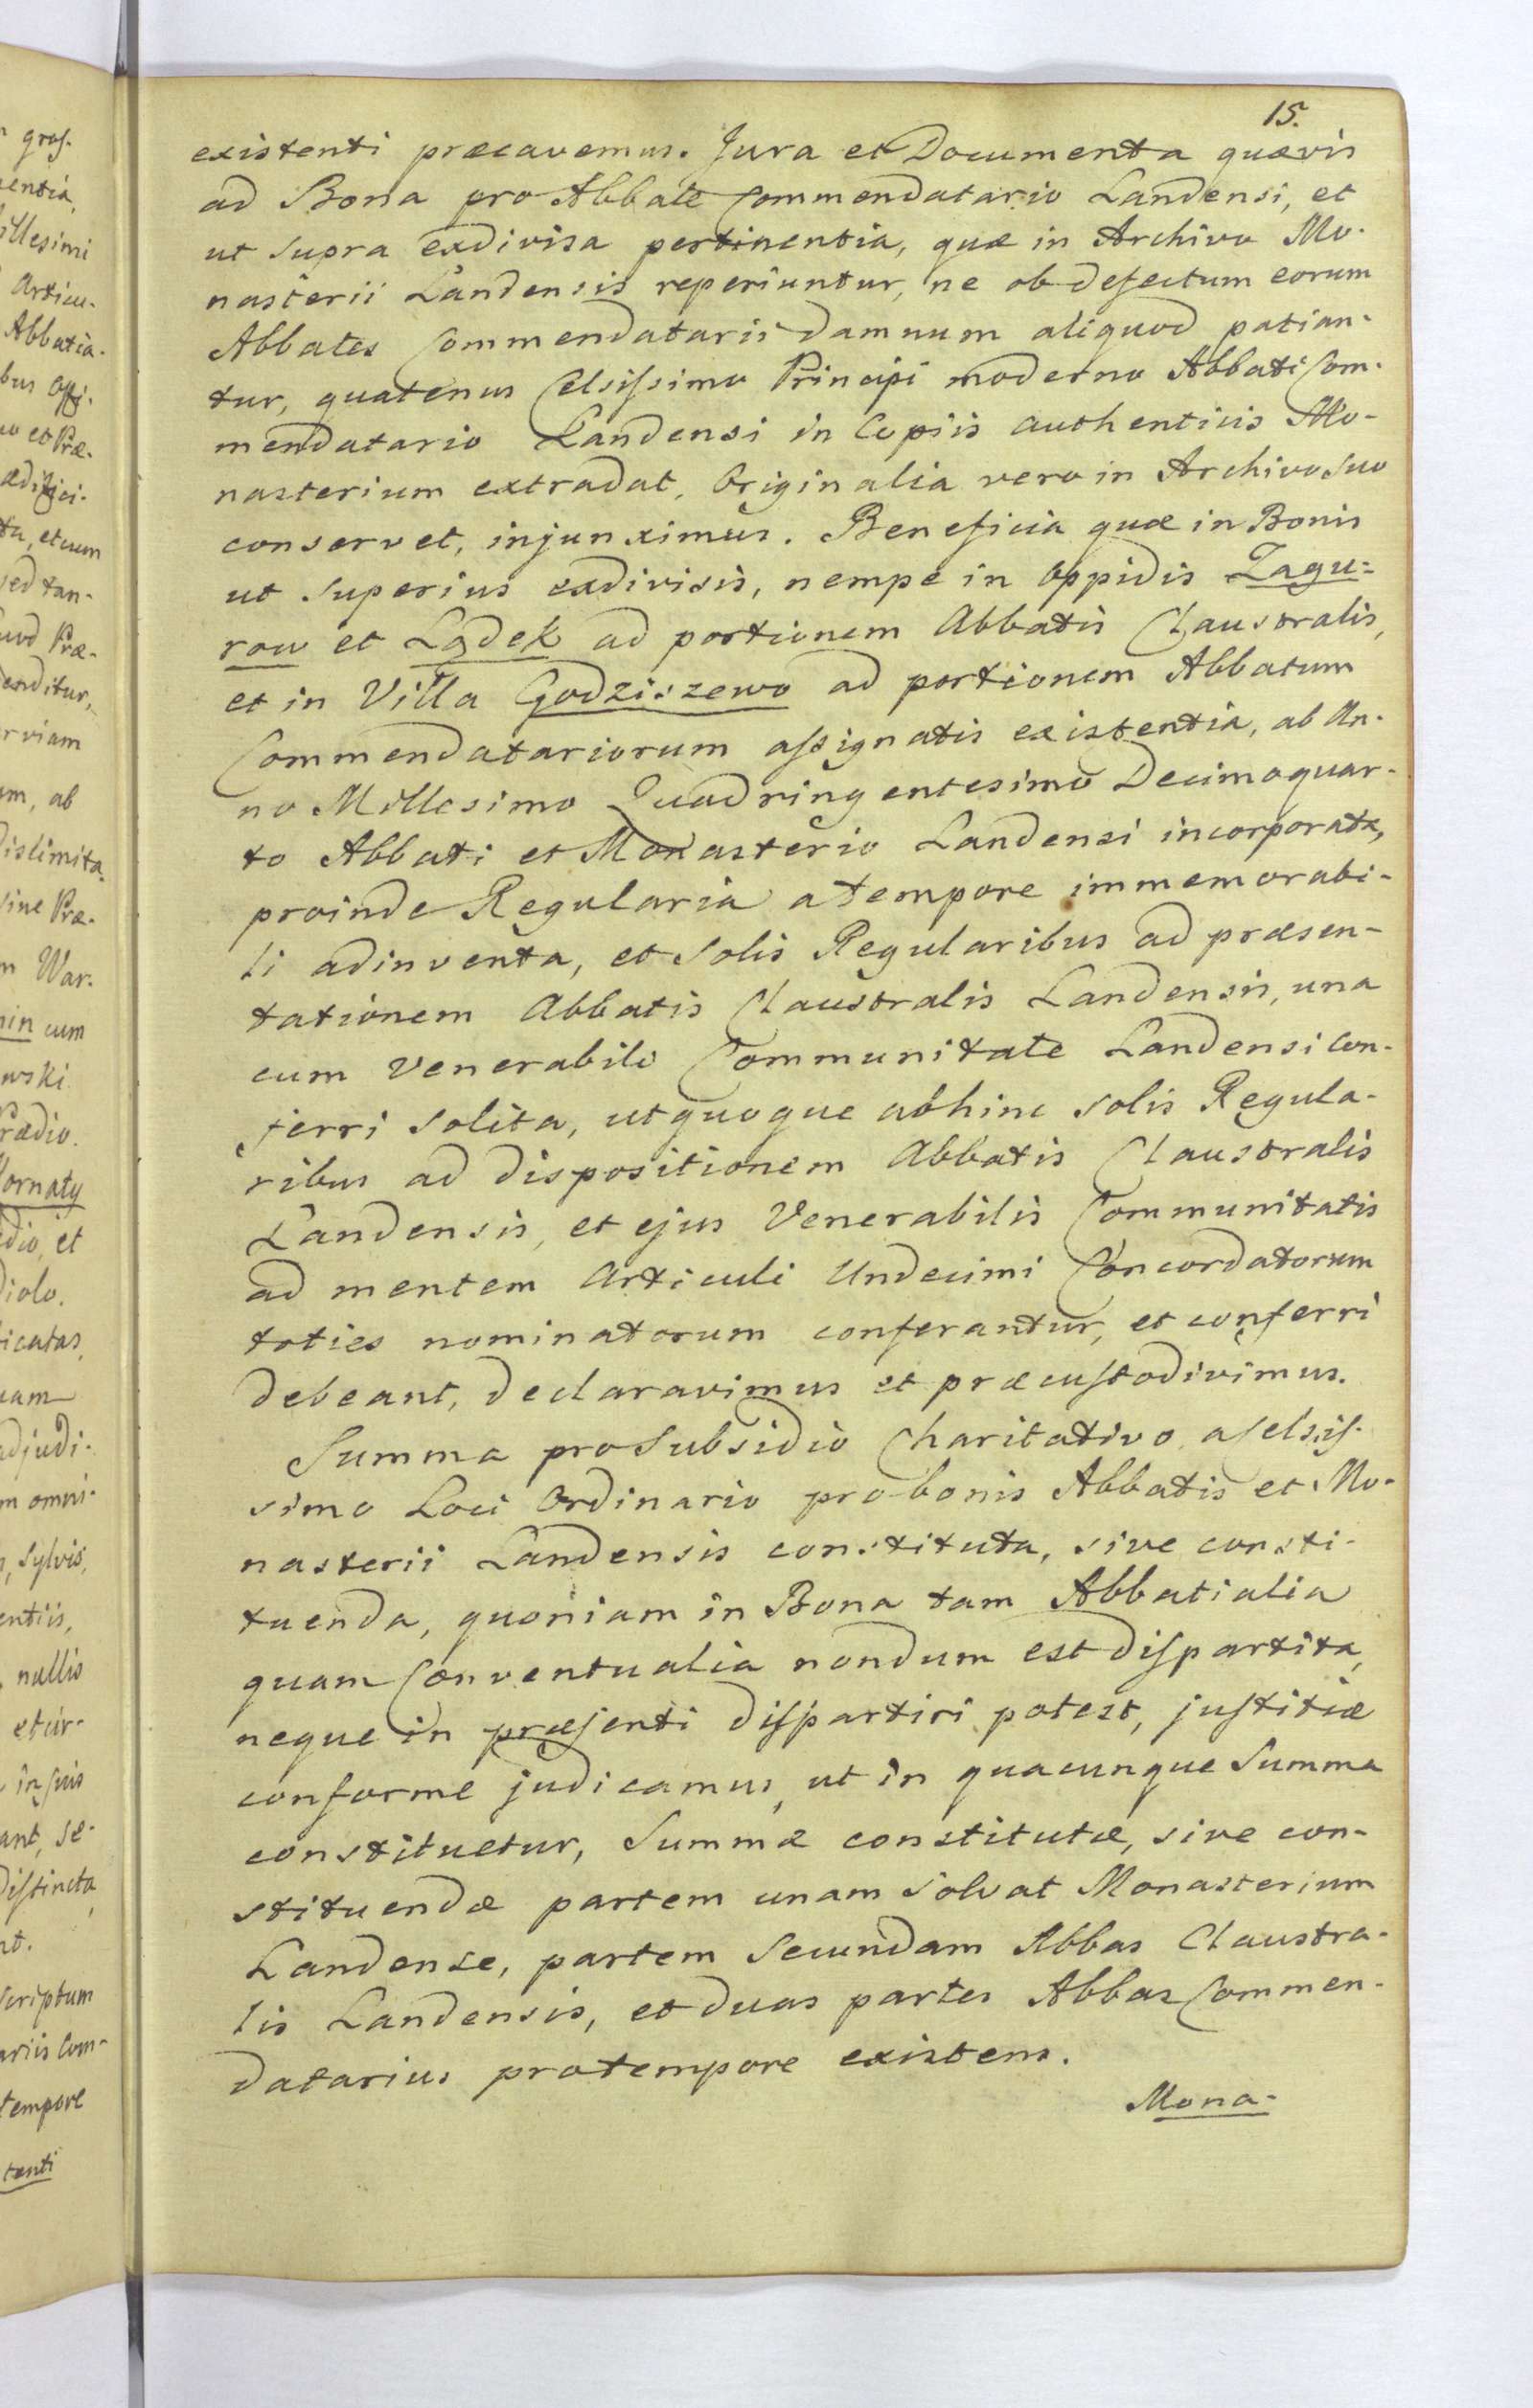 15.
existenti præcavemus. Jura et Documenta quævis
ad Bona pro Abbate Commendatario Landensi, et
ut supra exdivisa pertinentia, quæ in Archivo Mo-
nasterii Landensis reperiuntur, ne ob defectum eorum
Abbates Commendatarii damnum aliquod patian-
tur, quatenus Celsissimo Principi moderno Abbati Com-
mendatario Landensi in Copiis authenticis Mo-
nasterium extradat, Originalia vero in Archivo suo
conservet, injunximus. Beneficia quæ in Bonis
ut superius exdivisis, nempe in Oppidis Zagu-
row et Lądek ad portionem Abbatis Claustralis,
et in Villa Godziszewo ad portionem Abbatum
Commendatariorum assignatis existentia, ab An-
no Millesimo Quadringentesimo Decimoquar-
to Abbati et Monasterio Landensi incorporata,
proinde Regularia a tempore immemorabi-
li adinventa, et solis Regularibus ad præsen-
tationem Abbatis Claustralis Landensis, una
cum Venerabili Communitate Landensi con-
ferri solita, ut quoque abhinc solis Regula-
ribus ad dispositionem Abbatis Claustralis
Landensis, et ejus Venerabilis Communitatis
ad mentem Articuli Undecimi Concordatorum
toties nominatorum conferantur, et conferri
debeant, declaravimus et præcustodivimus.
Summa pro Subsidio Charitativo a Celsis-
simo Loci Ordinario pro bonis Abbatis et Mo-
nasterii Landensis constituta, sive consti-
tuenda, quoniam in Bona tam Abbatialia
quam Conventualia nondum est dispartita,
neque in præsenti dispartiri potest, justitiæ
conforme judicamus, ut in quacunque Summa
constituetur, Summæ constitutæ, sive con-
stituendæ partem unam solvat Monasterium
Landense, partem secundam Abbas Claustra-
lis Landensis, et duas partes Abbas Commen-
datarius pro tempore existens.
Mona-